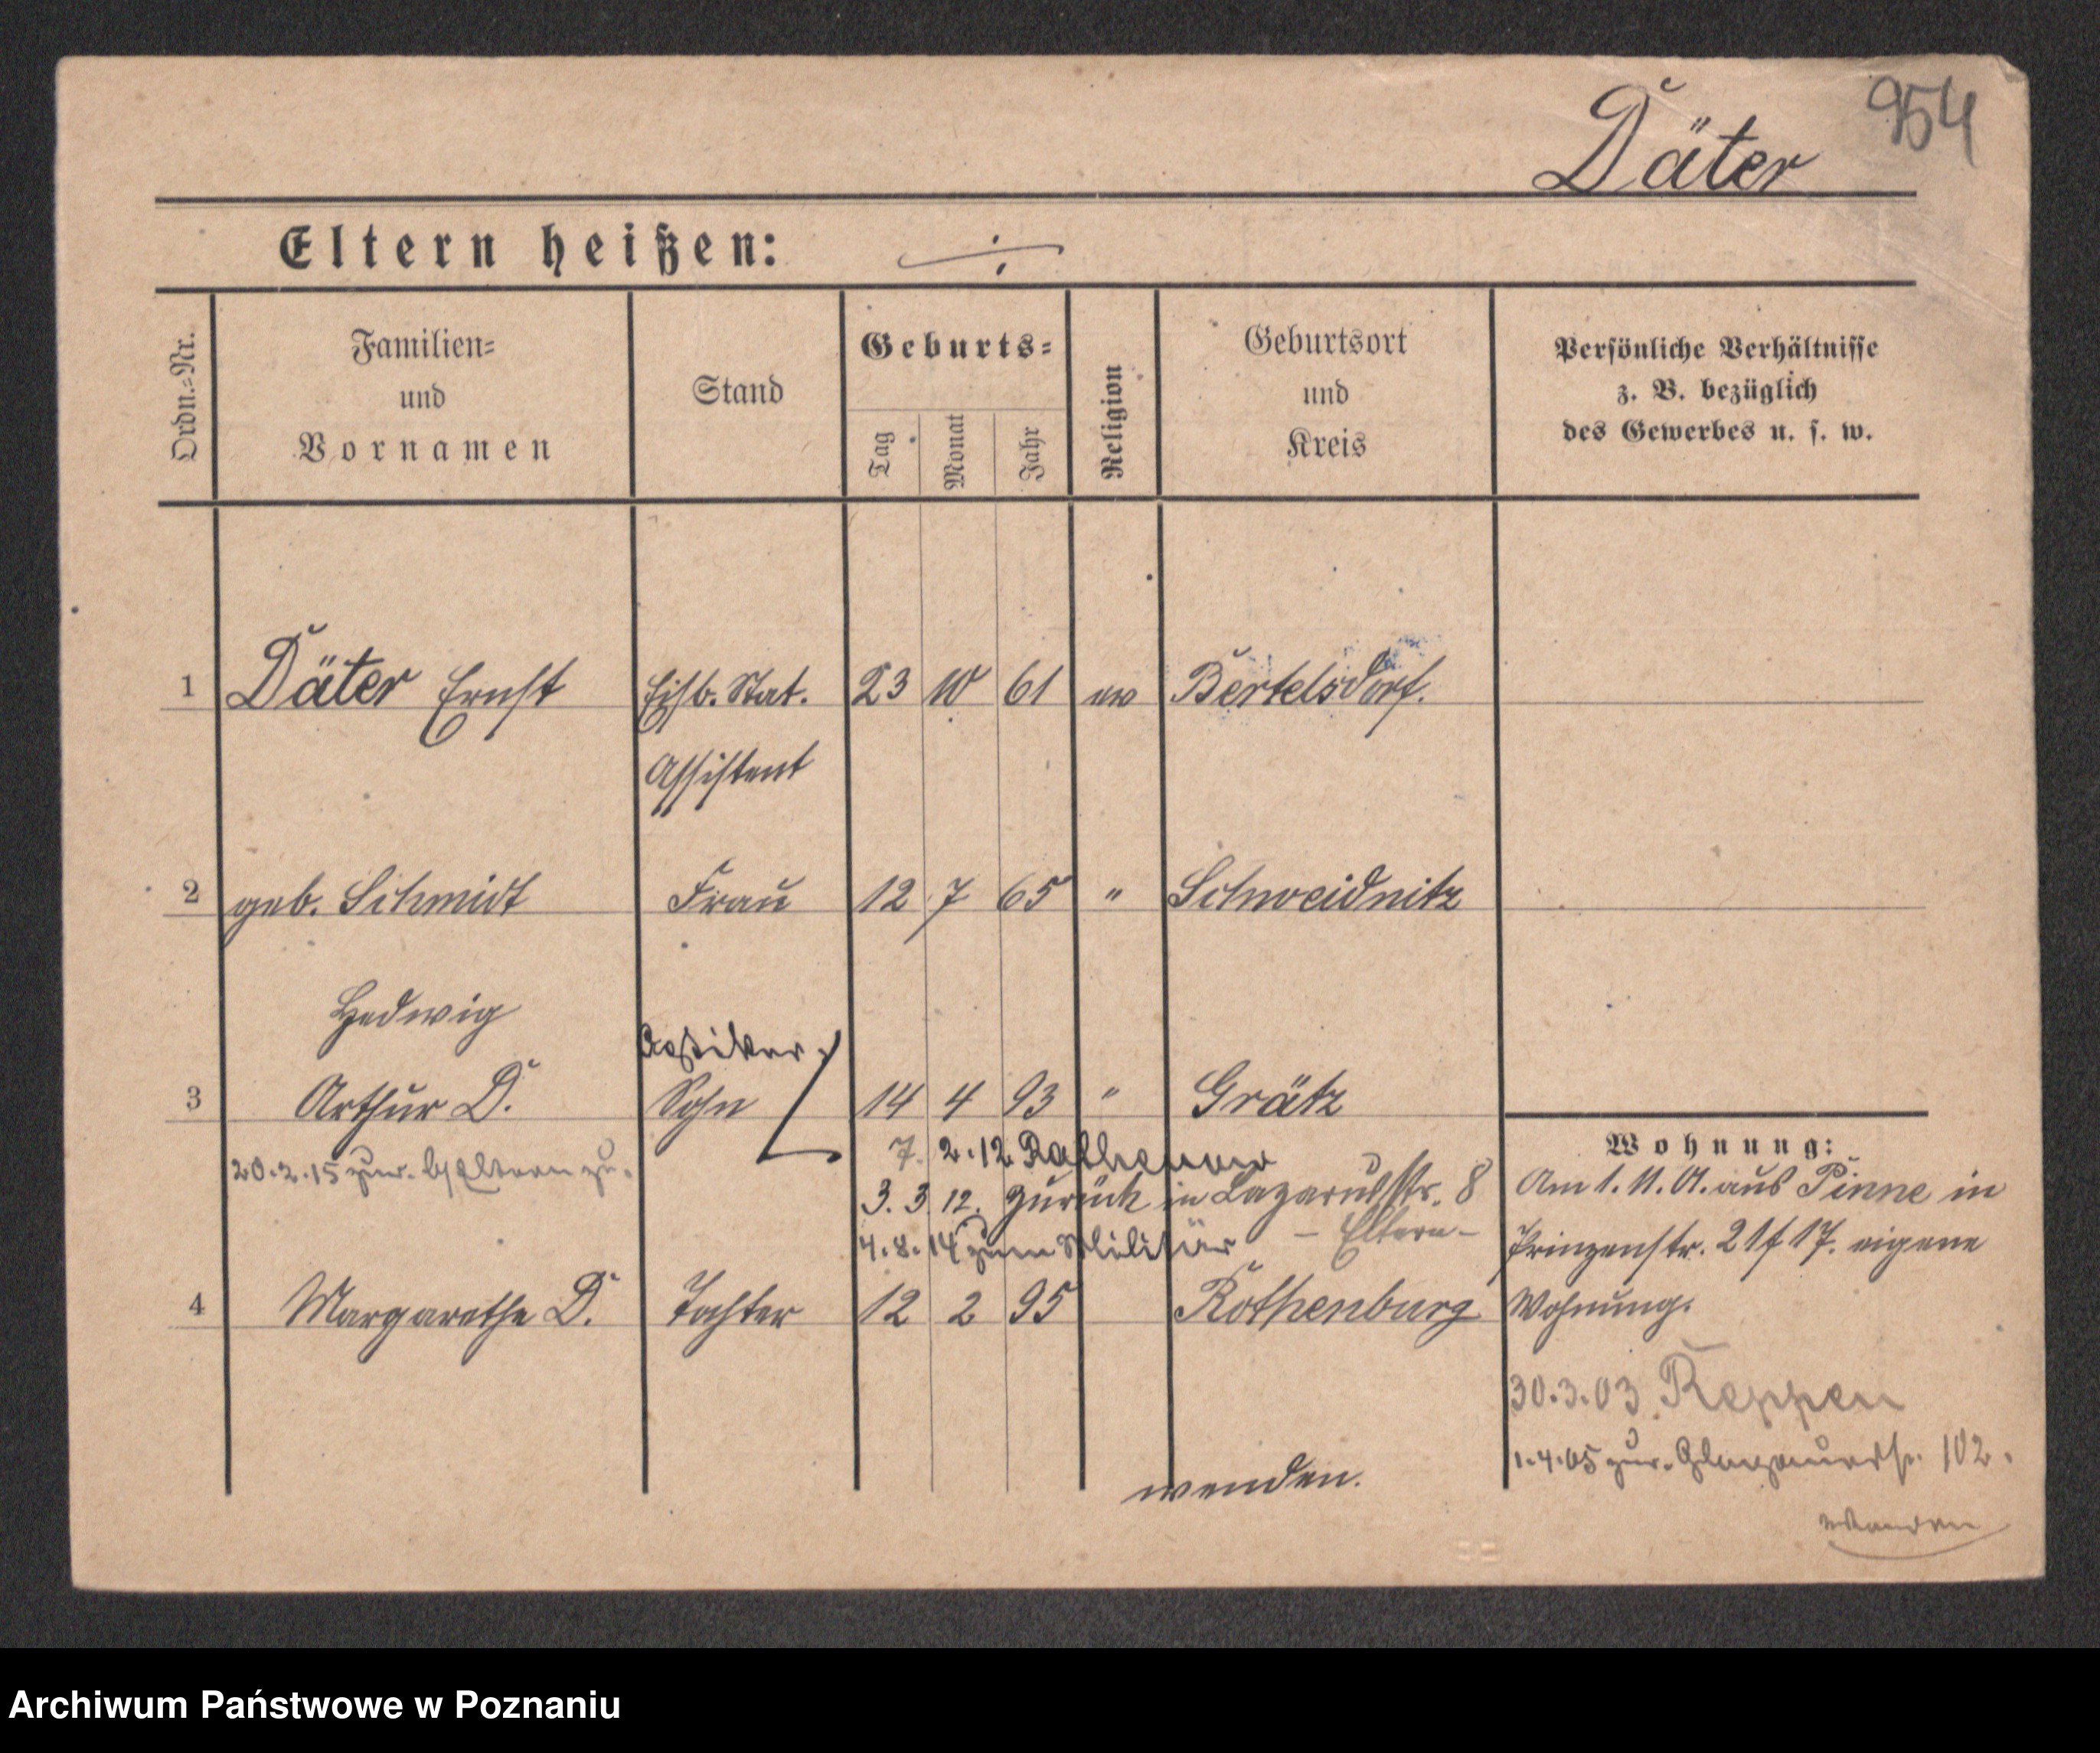 954
Däter
Eltern heißen: ÷
Ordn.=Nr.
Familien=
und
Vornamen
Stand
Geburts=
Tag
Monat
Jahr
Religion
Geburtsort
und
Kreis
Persönliche Verhältnisse
z. B. bezüglich
des Gewerbes u. s. w.
1 Däter Ernst Eisb. Stat. 23 10 61 ev Bertelsdorf.
Assistent
2 geb. Schmidt Frau 12 7 65 " Schweidnitz
Hedwig
3 Arthur D. Sohn 14 4 93 " Grätz
7. 2. 12 Rathenow
20.2.15 zur.
3. 3. 12. zurück in Lazarusstr. 8
- Eltern -
4.8.14 zum Militär
4 Margarethe D. Tochter 12 2 95 Rothenburg
Wohnung:
Am 1. 11. 01. aus Pinne in
Prinzenstr. 21 17. eigene
Wohnung.
30.3.03 Reppen
1.4.05 zur. 102.
wenden.
wenden
Archiwum Państwowe w Poznaniu